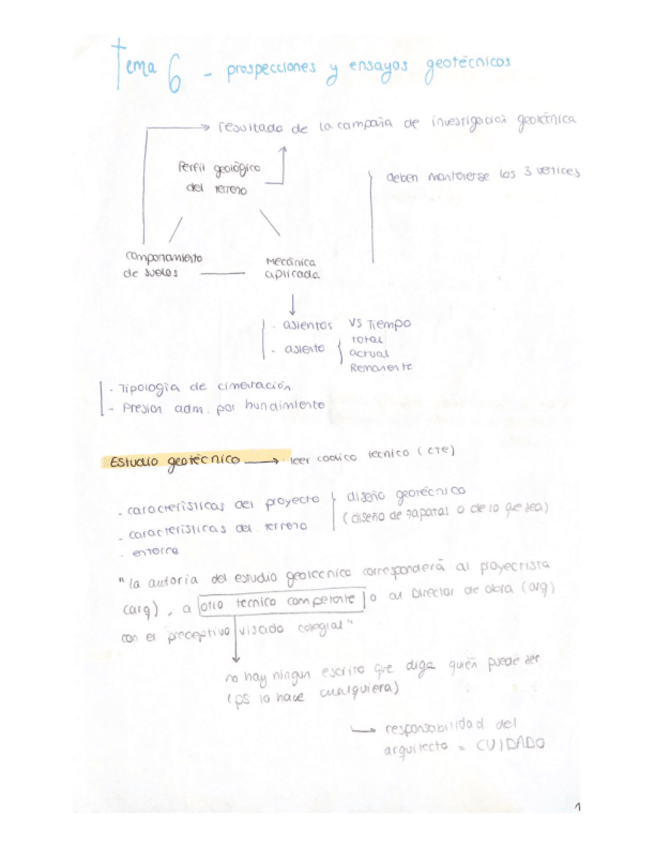 Tema 6 - prospecciones y ensayos geotécnicos
resultado de la campaña de investigación geotécnica
Perfil geológico
del terreno
deben mantenerse los 3 vertices
comportamiento
de suelos
Mecánica
aplicada
- asientos VS Tiempo
- asiento { total
actual
Remanente
- Tipología de cimentación
- Presion adm. por hundimiento
Estudio geotécnico → leer codico tecnico (CTE)
- características del proyecto
- características del terreno
- entorno
diseño geotécnico
(diseño de zapatas o de lo que sea)
"la autoria del estudio geotecnico corresponderá al proyectista
(arq), a otro tecnico competente o al Director de obra (arq)
con el preceptivo visado colegial"
no hay ningun escrito que diga quién puede ser
(ps lo hace cualquiera)
→ responsabilidad del
arquitecto = CUIDADO
1